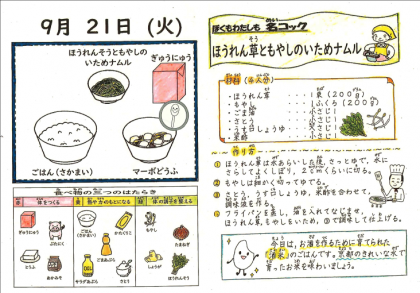 9月 21日 (火)
ほうれんそうともやしの
いためナムル
ぎゅうにゅう
ごはん(さかまい)
マーボどうふ
食べ物の三つのはたらき
体をつくる
熱や力のもとになる
体の調子を整える
ぎゅうにゅう
ぶたにく
とうふ
あかみそ
ごはん
(さかまい)
かたくりこ
サラダあぶら
ごまあぶら
さとう
もやし
たまねぎ
しょうが
ほうれんそう
ぼくもわたしも 名コック
ほうれん草ともやしのいためナムル
材料(4人分)
・ほうれん草
1束(200g)
・もやし
1ふくろ(200g)
・ごま油
小さじ1
・さとう
小さじ
・うす口しょうゆ
・米酢
小さじ
作り方
① ほうれん草は水あらいした後、さっとゆで、水に
さらしてよくしぼり、2cmくらいに切る。
② もやしは細かく切ってゆでる。
③ さとう、うす口しょうゆ、米酢を合わせて、
調味液を作る。
④ フライパンを熱し、油を入れてなじませ、
ほうれん草、もやしをいため、③で調味して仕上げる。
今日は、お酒を作るために育てられた
「酒米」のごはんです。京都のきれいな水で
育ったお米を味わいましょう。